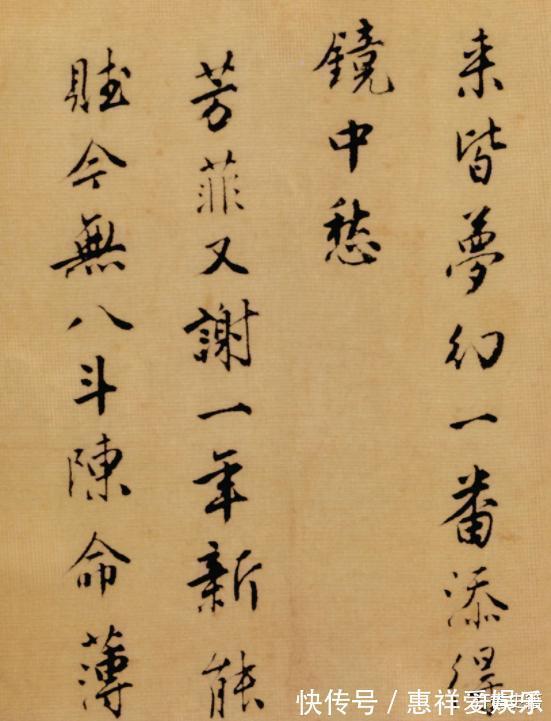 来皆夢幻一番添得
鏡中愁
芳菲又謝一年新能
賦今無八斗陳命薄
快传号／惠祥爱娱乐